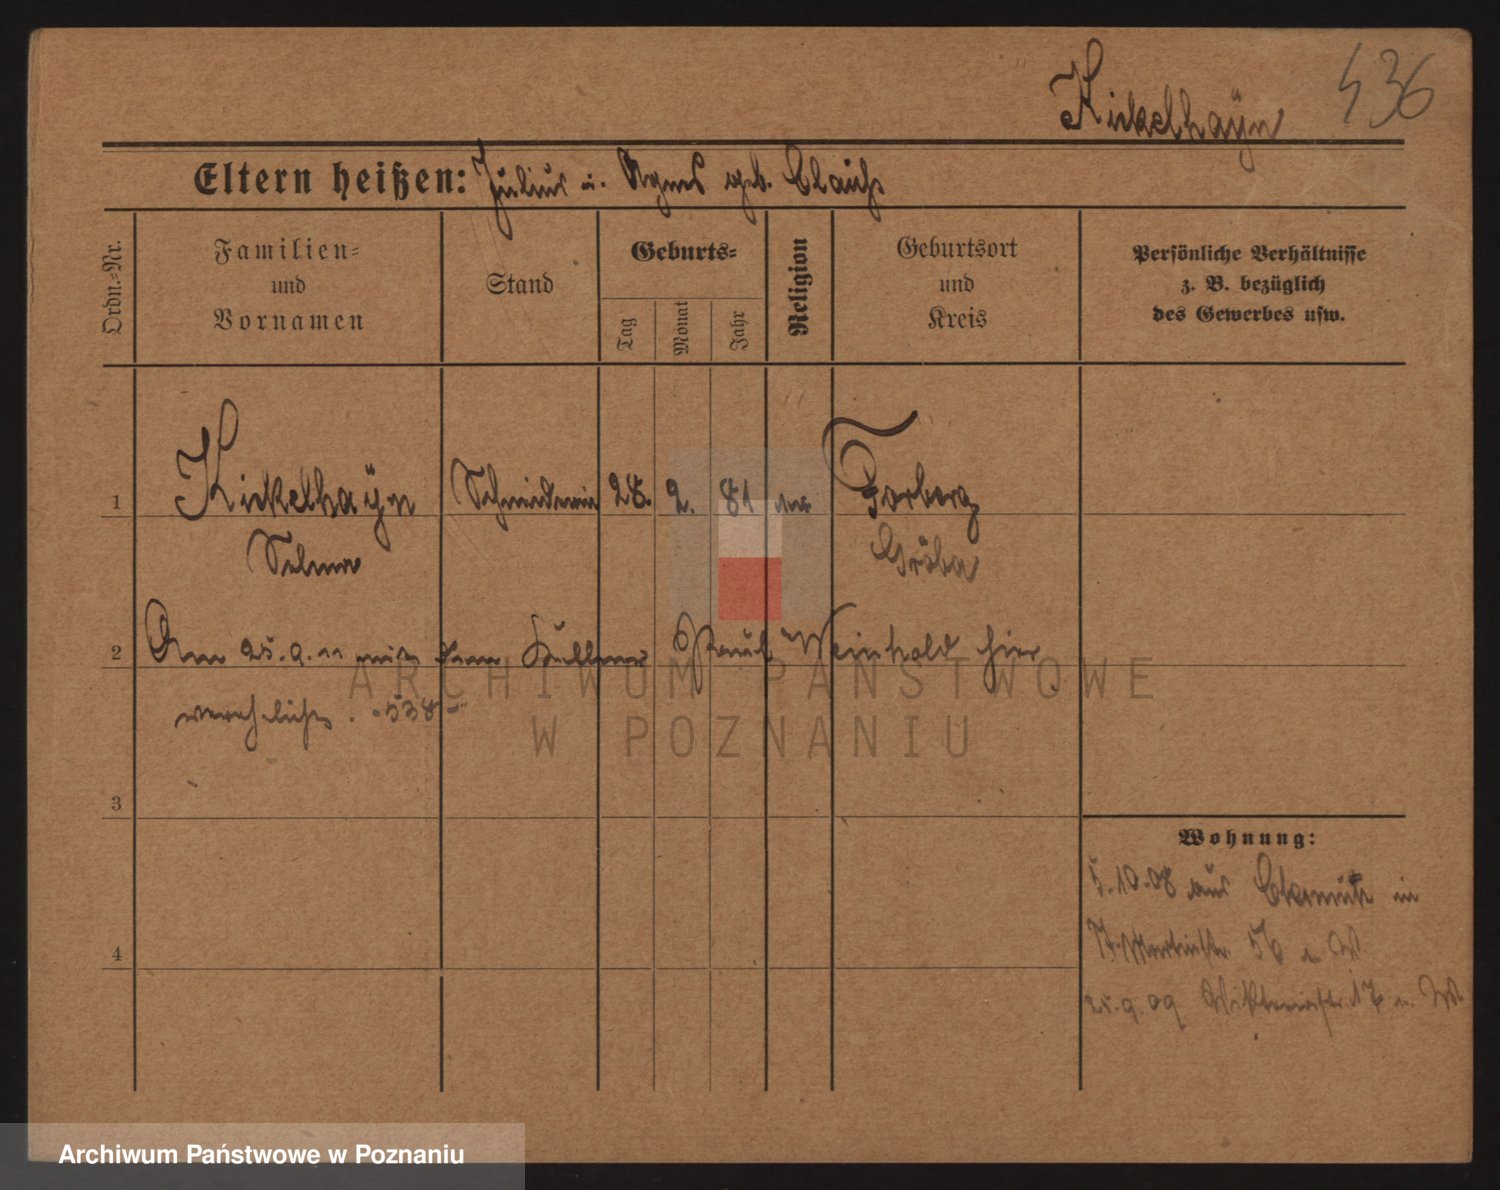 Kickelhaÿn 436
Eltern heißen: Julius u. Agnes geb. Clauß
Ordn.=Nr.
Familien=
und
Vornamen
Stand
Geburts=
Tag
Monat
Jahr
Religion
Geburtsort
und
Kreis
Persönliche Verhältnisse
z. B. bezüglich
des Gewerbes usw.
1 Kickelhaÿn Schneiderin 28. 2. 81 ev Forberg
Selma Gröba
2 Am 25.9.11 mit dem Kellner Paul Weinhold hier
verehelicht. 538
3
Wohnung:
5.10.08 aus Chemnitz in
St. Martinstr. 56 W.
4
25.9.09 Viktoriastr. 17 W.
ARCHIWUM PAŃSTWOWE
W POZNANIU
Archiwum Państwowe w Poznaniu